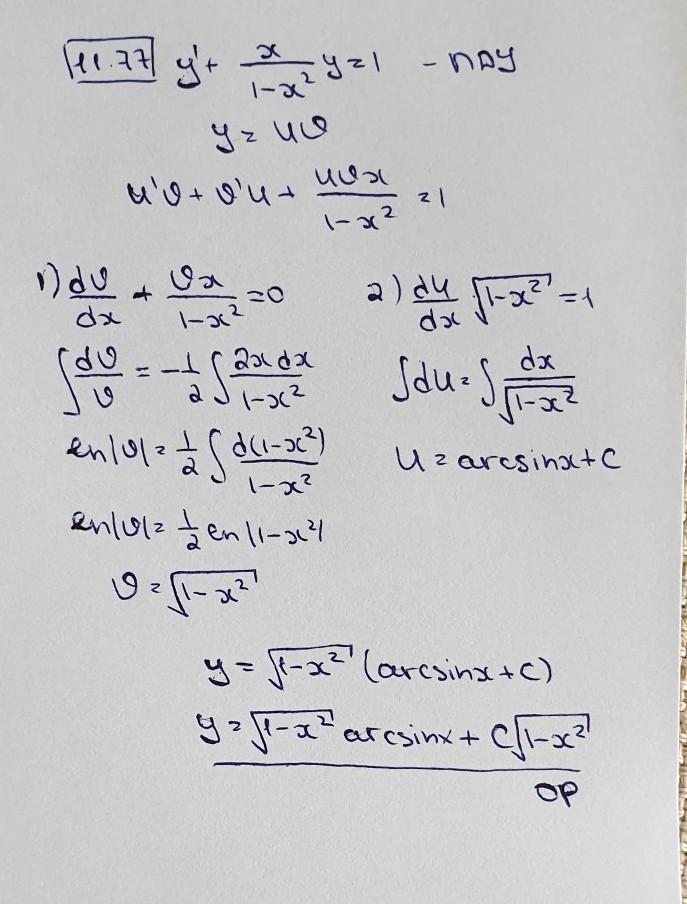 11.77 y' + x/(1-x²) y = 1 - ЛДУ
y = uv
u'v + v'u + uvx/(1-x²) = 1
1) dv/dx + vx/(1-x²) = 0
∫ dv/v = -1/2 ∫ 2x dx/(1-x²)
ln|v| = 1/2 ∫ d(1-x²)/(1-x²)
ln|v| = 1/2 ln|1-x²|
v = √(1-x²)
2) du/dx √(1-x²) = 1
∫ du = ∫ dx/√(1-x²)
u = arcsinx + C
y = √(1-x²) (arcsinx + C)
y = √(1-x²) arcsinx + C√(1-x²)
ОР